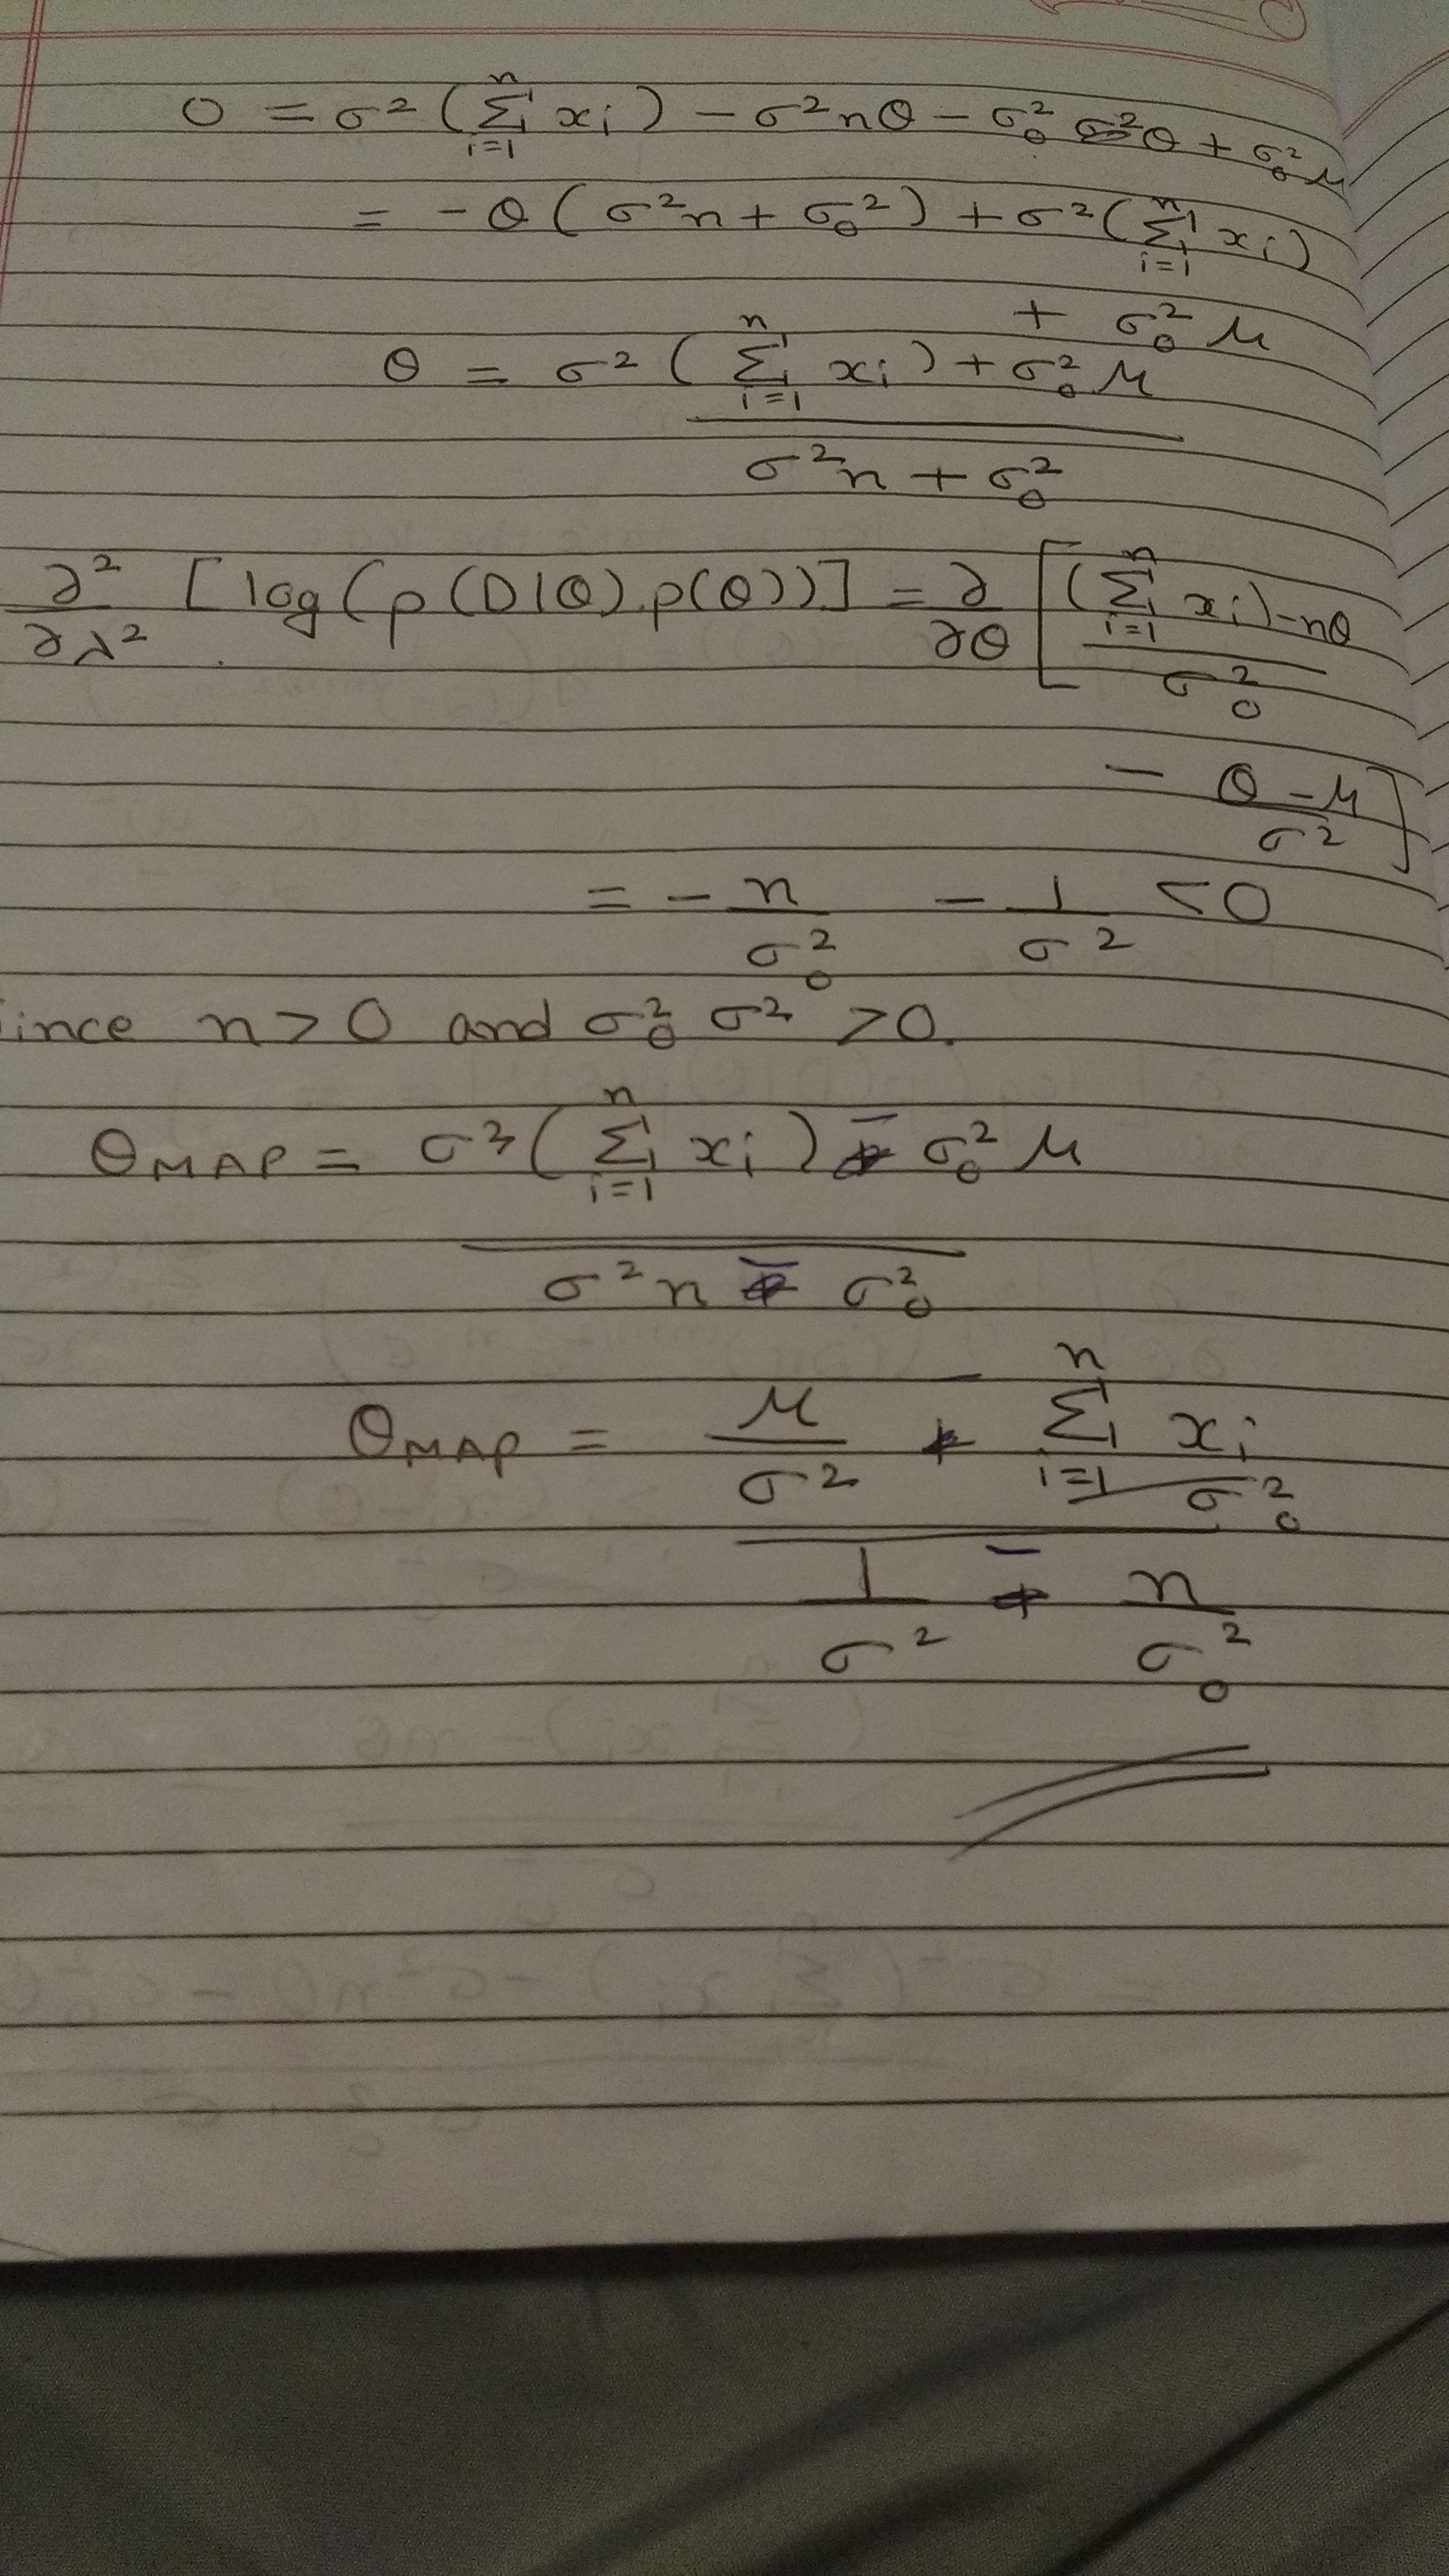 0 = σ² (Σᵢ₌₁ⁿ xᵢ) − σ²nθ − σ₀² θ + σ₀²μ
= −θ (σ²n + σ₀²) + σ² (Σᵢ₌₁ⁿ xᵢ)
+ σ₀² μ
θ = σ² (Σᵢ₌₁ⁿ xᵢ) + σ₀² μ
σ²n + σ₀²
∂²/∂λ² [log(p(D|θ).p(θ))] = ∂/∂θ [ ((Σᵢ₌₁ⁿ xᵢ) − nθ)/σ₀²
− (θ − μ)/σ² ]
= − n/σ₀² − 1/σ² < 0
ince n > 0 and σ₀² σ² > 0.
θMAP = σ² (Σᵢ₌₁ⁿ xᵢ) − σ₀² μ
σ²n − σ₀²
θMAP = μ/σ² − Σᵢ₌₁ⁿ xᵢ/σ₀²
1/σ² − n/σ₀²